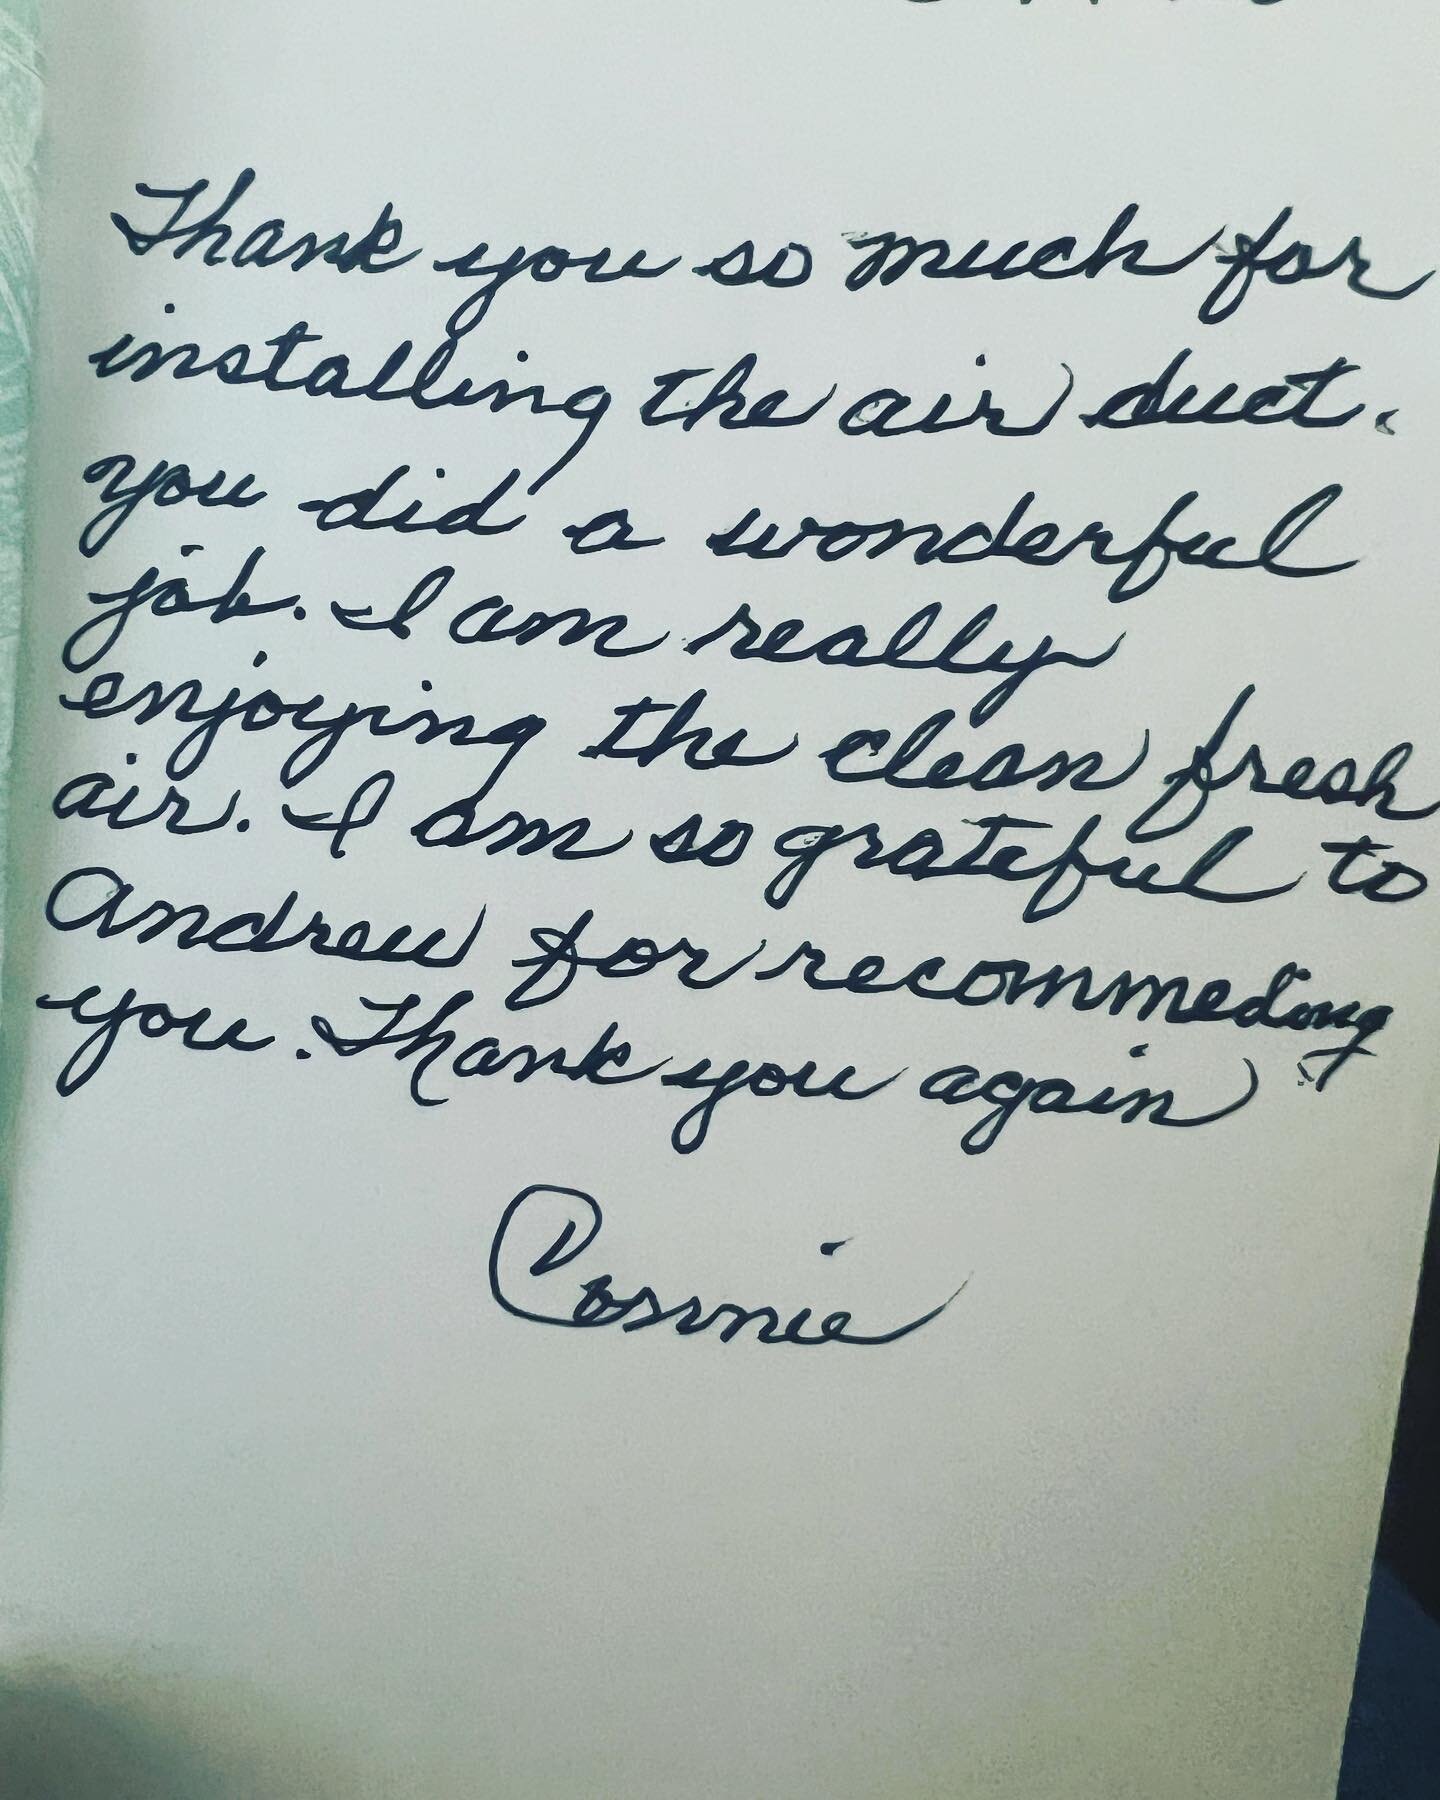 Thank you so much for
installing the air duct.
you did a wonderful
job. I am really
enjoying the clean fresh
air. I am so grateful to
Andrew for recommeding
you. Thank you again
Connie